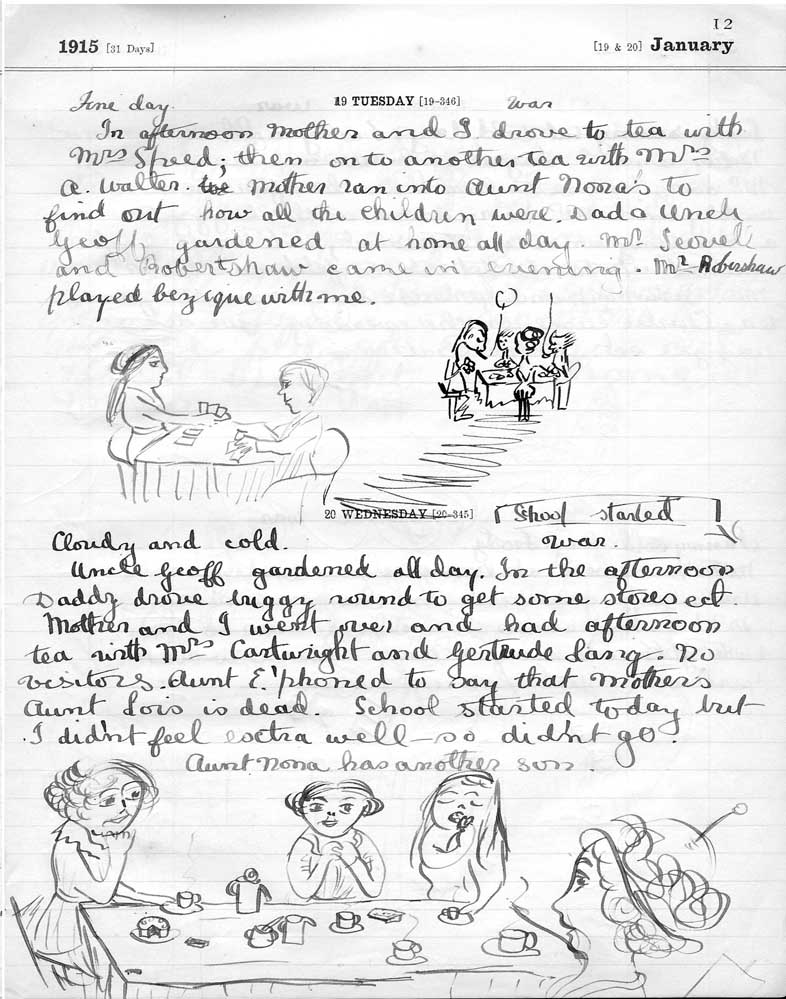 12
1915 [31 Days] [19 & 20] January
Fine day. 19 TUESDAY [19-346] war
In afternoon Mother and I drove to tea with
Mrs Speed; then on to another tea with Mrs
A. Walter. Mother ran into Aunt Nona's to
find out how all the children were. Dad & Uncle
Geoff gardened at home all day. Mr Scovell
and Robertshaw came in evening. Mr Robershaw
played bezique with me.
20 WEDNESDAY [20-345] School started
Cloudy and cold. war.
Uncle Geoff gardened all day. In the afternoon
Daddy drove buggy round to get some stores ect.
Mother and I went over and had afternoon
tea with Mrs Cartwright and Gertrude Lang. No
visitors. Aunt E. 'phoned to say that Mother's
Aunt Lois is dead. School started today but
I didn't feel esctra well – so didn't go.
Aunt Nona has another son.